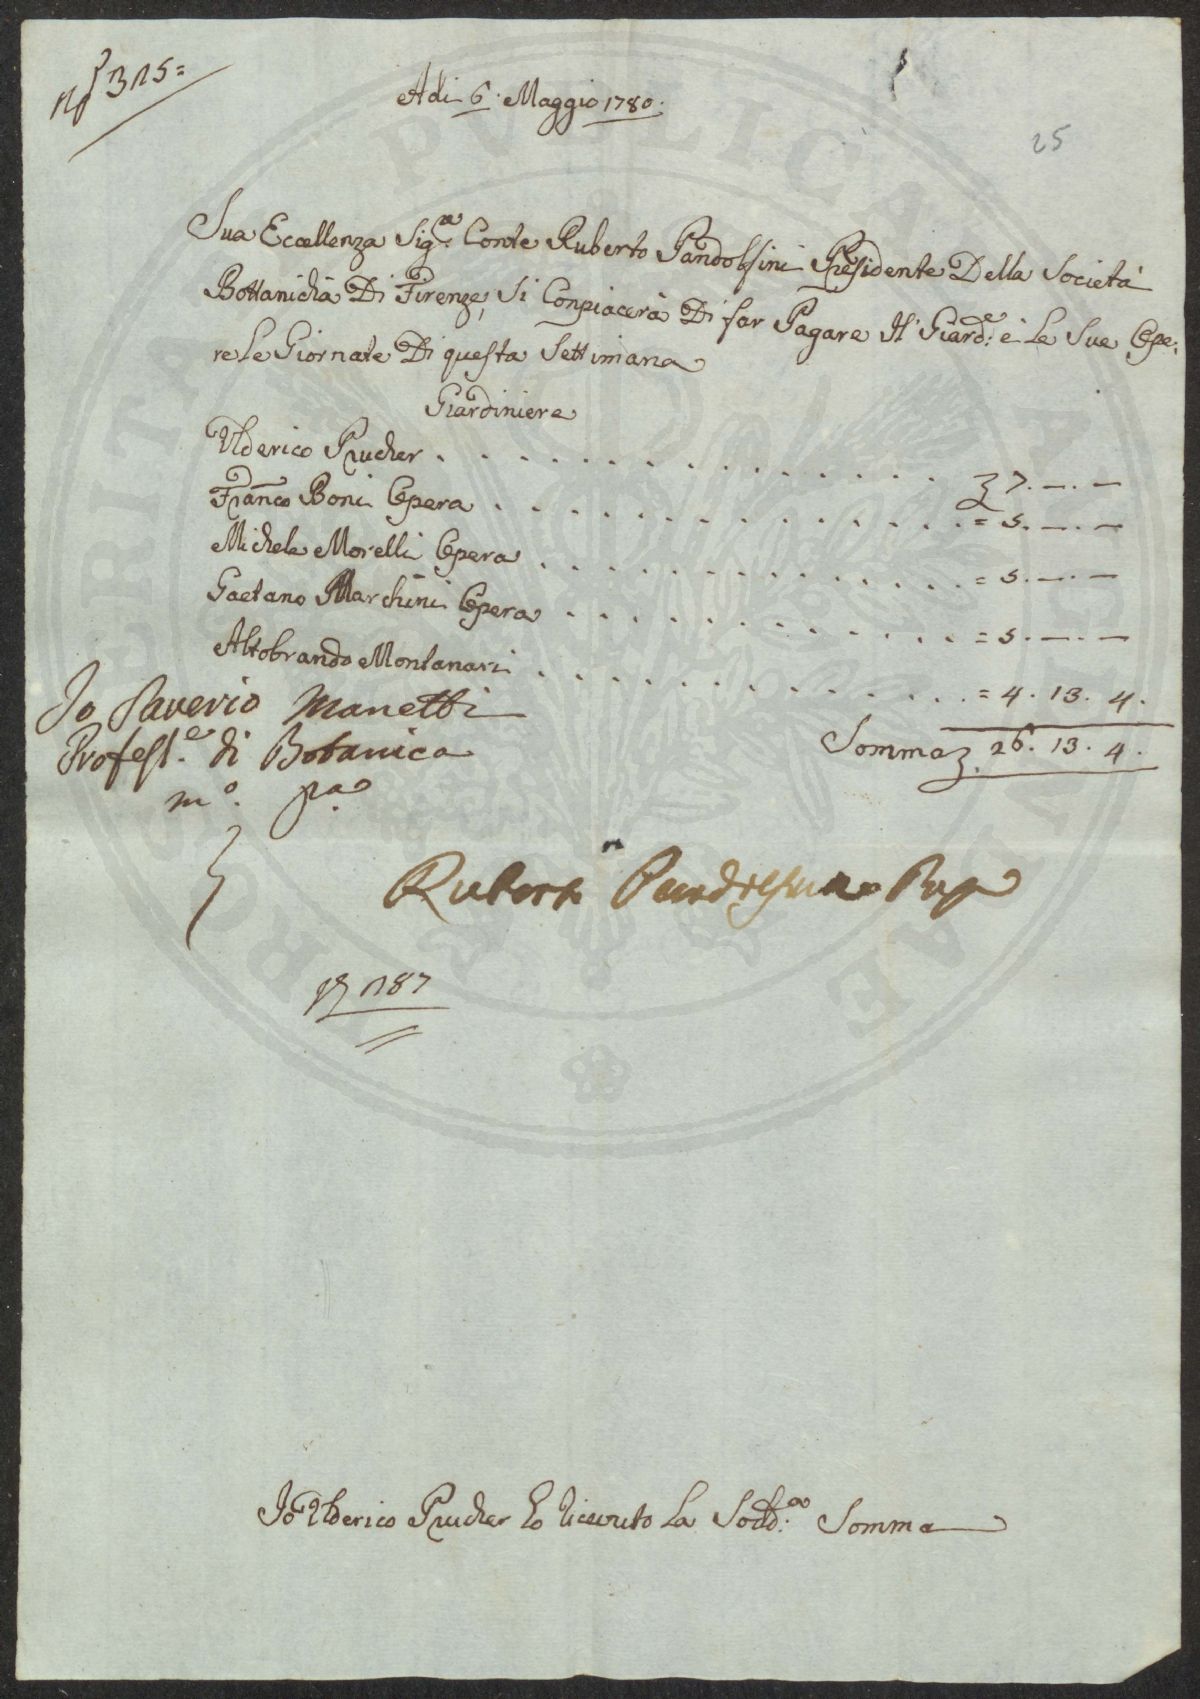 N° 315=
Adi 6. Maggio 1780.
25
Sua Eccellenza Sig.re Conte Ruberto Pandolfini Presidente Della Società
Bottanicha Di Firenze, si Conpiacerà Di far Pagare Il Giard.e e Le Sue Ope:
re Le Giornate Di questa Settimana
Giardiniere
Ulderico Prucher . . . . . . . . . . . . . . . 7. —. —
Fran.co Boni Opera . . . . . . . . . . . . . = 5. —. —
Michele Morelli Opera . . . . . . . . . . . . = 5. —. —
Gaetano Marchini Opera . . . . . . . . . . . . = 5. —. —
Altobrando Montanari . . . . . . . . . . . . . = 4. 13. 4.
Somma 26. 13. 4.
Io Saverio Manetti
Profess.e di Botanica
m.o p.a
Ruberto Pandolfini
187
Io Ulderico Prucher ho ricevuto La Sodd.a Somma